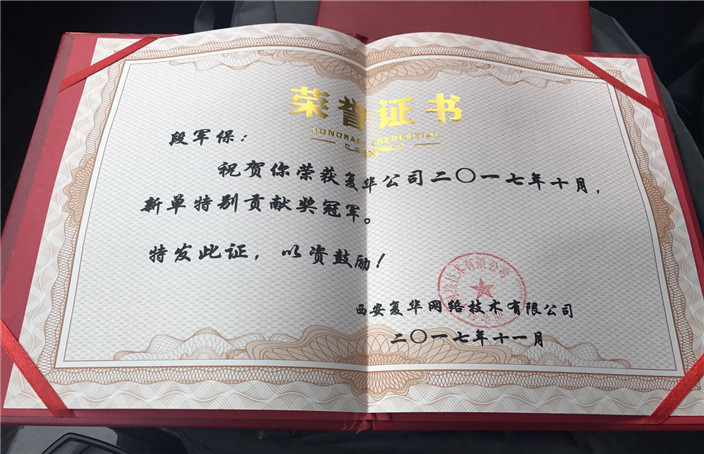 荣誉证书
HONORARY CREDENTIAL
段军保：
祝贺你荣获复华公司二〇一七年十月，
新单特别贡献奖冠军。
特发此证，以资鼓励！
技术有限公司
西安复华网络技术有限公司
二〇一七年十一月